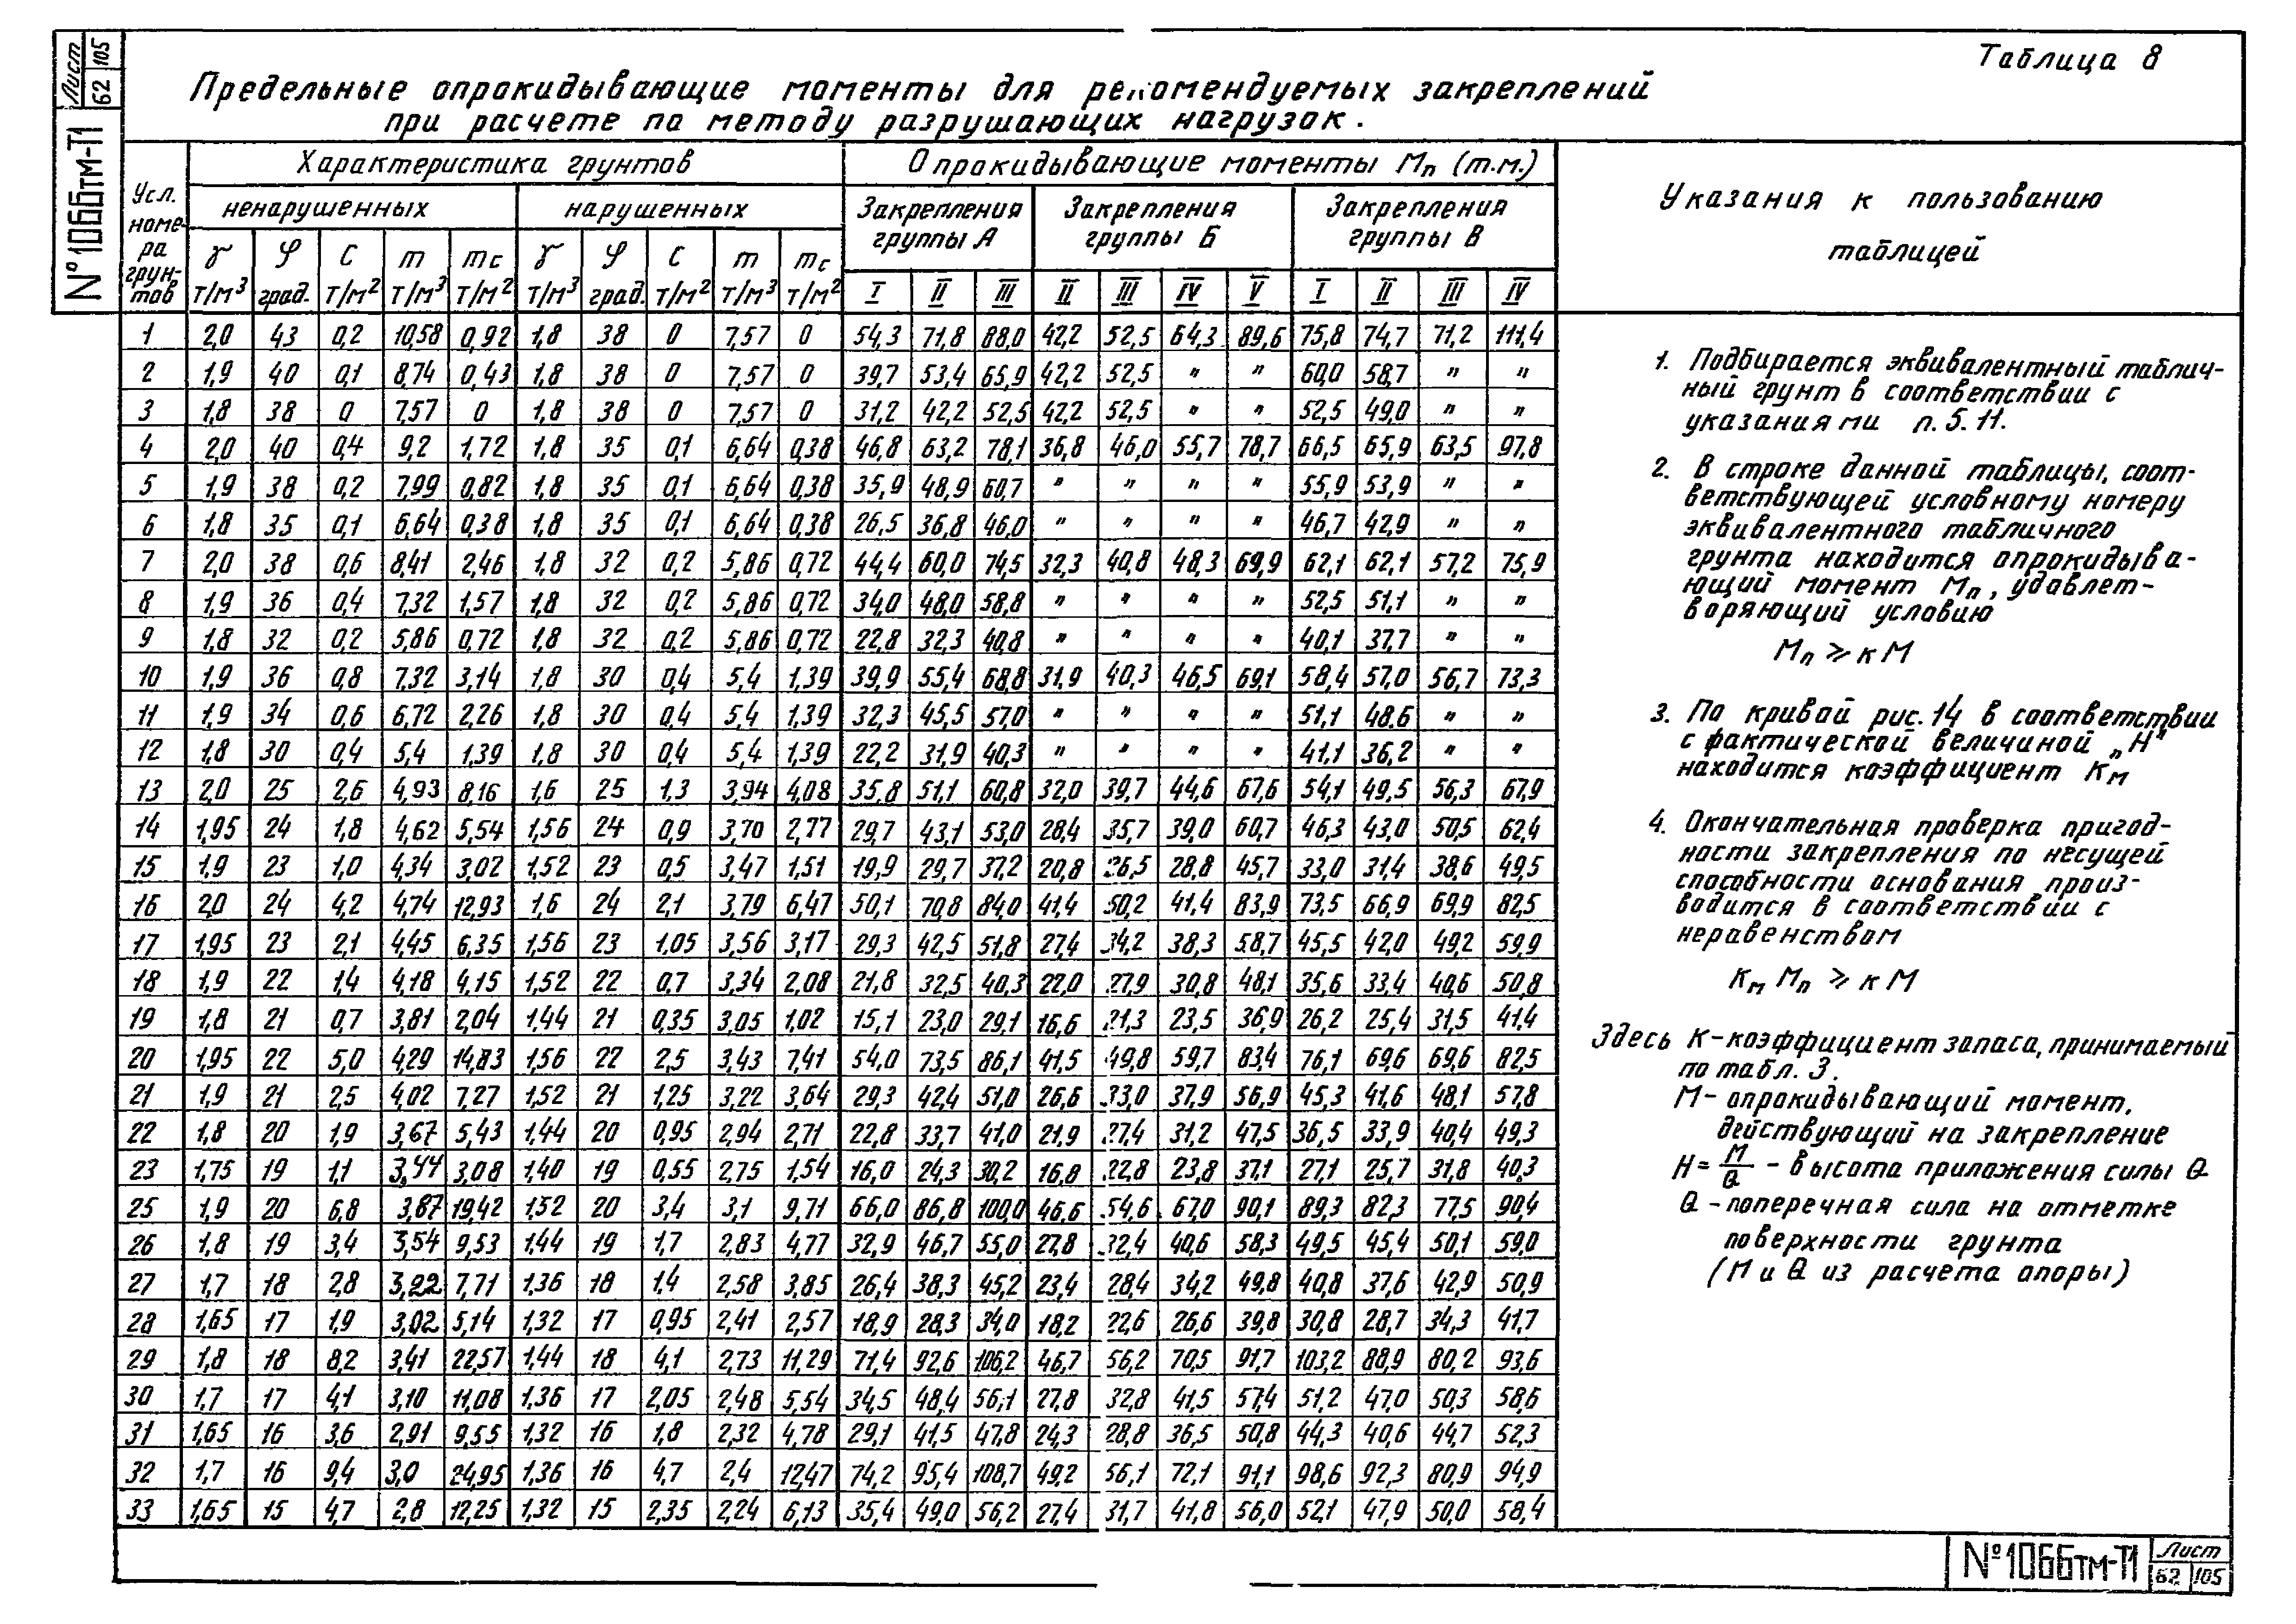 Лист
62 105
№1066тм-Т1
Таблица 8
Предельные опрокидывающие моменты для рекомендуемых закреплений
при расчете по методу разрушающих нагрузок.
Усл. номера грунтов
Характеристика грунтов
Опрокидывающие моменты Мп (т.м.)
Указания к пользованию
таблицей
ненарушенных
нарушенных
Закрепления группы А
Закрепления группы Б
Закрепления группы В
γ т/м³ φ град. С т/м² m т/м³ mс т/м² γ т/м³ φ град. С т/м² m т/м³ mс т/м² I II III II III IV V I II III IV
1 2,0 43 0,2 10,58 0,92 1,8 38 0 7,57 0 54,3 71,8 88,0 42,2 52,5 64,3 89,6 75,8 74,7 71,2 111,4
2 1,9 40 0,1 8,74 0,43 1,8 38 0 7,57 0 39,7 53,4 65,9 42,2 52,5 " " 60,0 58,7 " "
3 1,8 38 0 7,57 0 1,8 38 0 7,57 0 31,2 42,2 52,5 42,2 52,5 " " 52,5 49,0 " "
4 2,0 40 0,4 9,2 1,72 1,8 35 0,1 6,64 0,38 46,8 63,2 78,1 36,8 46,0 55,7 78,7 66,5 65,9 63,5 97,8
5 1,9 38 0,2 7,99 0,82 1,8 35 0,1 6,64 0,38 35,9 48,9 60,7 " " " " 55,9 53,9 " "
6 1,8 35 0,1 6,64 0,38 1,8 35 0,1 6,64 0,38 26,5 36,8 46,0 " " " " 46,7 42,9 " "
7 2,0 38 0,6 8,41 2,46 1,8 32 0,2 5,86 0,72 44,4 60,0 74,5 32,3 40,8 48,3 69,9 62,1 62,1 57,2 75,9
8 1,9 36 0,4 7,32 1,57 1,8 32 0,2 5,86 0,72 34,0 48,0 58,8 " " " " 52,5 51,1 " "
9 1,8 32 0,2 5,86 0,72 1,8 32 0,2 5,86 0,72 22,8 32,3 40,8 " " " " 40,1 37,7 " "
10 1,9 36 0,8 7,32 3,14 1,8 30 0,4 5,4 1,39 39,9 55,4 68,8 31,9 40,3 46,5 69,1 58,4 57,0 56,7 73,3
11 1,9 34 0,6 6,72 2,26 1,8 30 0,4 5,4 1,39 32,3 45,5 57,0 " " " " 51,1 48,6 " "
12 1,8 30 0,4 5,4 1,39 1,8 30 0,4 5,4 1,39 22,2 31,9 40,3 " " " " 41,1 36,2 " "
13 2,0 25 2,6 4,93 8,16 1,6 25 1,3 3,94 4,08 35,8 51,1 60,8 32,0 39,7 44,6 67,6 54,1 49,5 56,3 67,9
14 1,95 24 1,8 4,62 5,54 1,56 24 0,9 3,70 2,77 29,7 43,1 53,0 28,4 35,7 39,0 60,7 46,3 43,0 50,5 62,4
15 1,9 23 1,0 4,34 3,02 1,52 23 0,5 3,47 1,51 19,9 29,7 37,2 20,8 26,5 28,8 45,7 33,0 31,4 38,6 49,5
16 2,0 24 4,2 4,74 12,93 1,6 24 2,1 3,79 6,47 50,1 70,8 84,0 41,4 50,2 41,4 83,9 73,5 66,9 69,9 82,5
17 1,95 23 2,1 4,45 6,35 1,56 23 1,05 3,56 3,17 29,3 42,5 51,8 27,4 34,2 38,3 58,7 45,5 42,0 49,2 59,9
18 1,9 22 1,4 4,18 4,15 1,52 22 0,7 3,34 2,08 21,8 32,5 40,3 22,0 27,9 30,8 48,1 35,6 33,4 40,6 50,8
19 1,8 21 0,7 3,81 2,04 1,44 21 0,35 3,05 1,02 15,1 23,0 29,1 16,6 21,3 23,5 36,9 26,2 25,4 31,5 41,4
20 1,95 22 5,0 4,29 14,83 1,56 22 2,5 3,43 7,41 54,0 73,5 86,1 41,5 49,8 59,7 83,4 76,1 69,6 69,6 82,5
21 1,9 21 2,5 4,02 7,27 1,52 21 1,25 3,22 3,64 29,3 42,4 51,0 26,6 33,0 37,9 56,9 45,3 41,6 48,1 57,8
22 1,8 20 1,9 3,67 5,43 1,44 20 0,95 2,94 2,71 22,8 33,7 41,0 21,9 27,4 31,2 47,5 36,5 33,9 40,4 49,3
23 1,75 19 1,1 3,44 3,08 1,40 19 0,55 2,75 1,54 16,0 24,3 30,2 16,8 22,8 23,8 37,1 27,1 25,7 31,8 40,3
25 1,9 20 6,8 3,87 19,42 1,52 20 3,4 3,1 9,71 66,0 86,8 100,0 46,6 54,6 67,0 90,1 89,3 82,3 77,5 90,4
26 1,8 19 3,4 3,54 9,53 1,44 19 1,7 2,83 4,77 32,9 46,7 55,0 27,8 32,4 40,6 58,3 49,5 45,4 50,1 59,0
27 1,7 18 2,8 3,22 7,71 1,36 18 1,4 2,58 3,85 26,4 38,3 45,2 23,4 28,4 34,2 49,8 40,8 37,6 42,9 50,9
28 1,65 17 1,9 3,02 5,14 1,32 17 0,95 2,41 2,57 18,9 28,3 34,0 18,2 22,6 26,6 39,8 30,8 28,7 34,3 41,7
29 1,8 18 8,2 3,41 22,57 1,44 18 4,1 2,73 11,29 71,4 92,6 106,2 46,7 56,2 70,5 91,7 103,2 88,9 80,2 93,6
30 1,7 17 4,1 3,10 11,08 1,36 17 2,05 2,48 5,54 34,5 48,4 56,1 27,8 32,8 41,5 57,4 51,2 47,0 50,3 58,6
31 1,65 16 3,6 2,91 9,55 1,32 16 1,8 2,32 4,78 29,1 41,5 47,8 24,3 28,8 36,5 50,8 44,3 40,6 44,7 52,3
32 1,7 16 9,4 3,0 24,95 1,36 16 4,7 2,4 12,47 74,2 95,4 108,7 49,2 56,1 72,1 91,1 98,6 92,3 80,9 94,9
33 1,65 15 4,7 2,8 12,25 1,32 15 2,35 2,24 6,13 35,4 49,0 56,2 27,4 31,7 41,8 56,0 52,1 47,9 50,0 58,4
1. Подбирается эквивалентный таблич-
ный грунт в соответствии с
указаниями п. 5.11.
2. В строке данной таблицы, соот-
ветствующей условному номеру
эквивалентного табличного
грунта находится опрокидыва-
ющий момент Мп, удовлет-
воряющий условию
Мп ⩾ кМ
3. По кривой рис. 14 в соответствии
с фактической величиной „Н"
находится коэффициент Км
4. Окончательная проверка пригод-
ности закрепления по несущей
способности основания произ-
водится в соответствии с
неравенством
Км Мп ⩾ кМ
Здесь К-коэффициент запаса, принимаемый
по табл. 3.
М- опрокидывающий момент,
действующий на закрепление
Н= М/Q - высота приложения силы Q
Q - поперечная сила на отметке
поверхности грунта
(М и Q из расчета опоры)
№1066тм-Т1
Лист
62 105